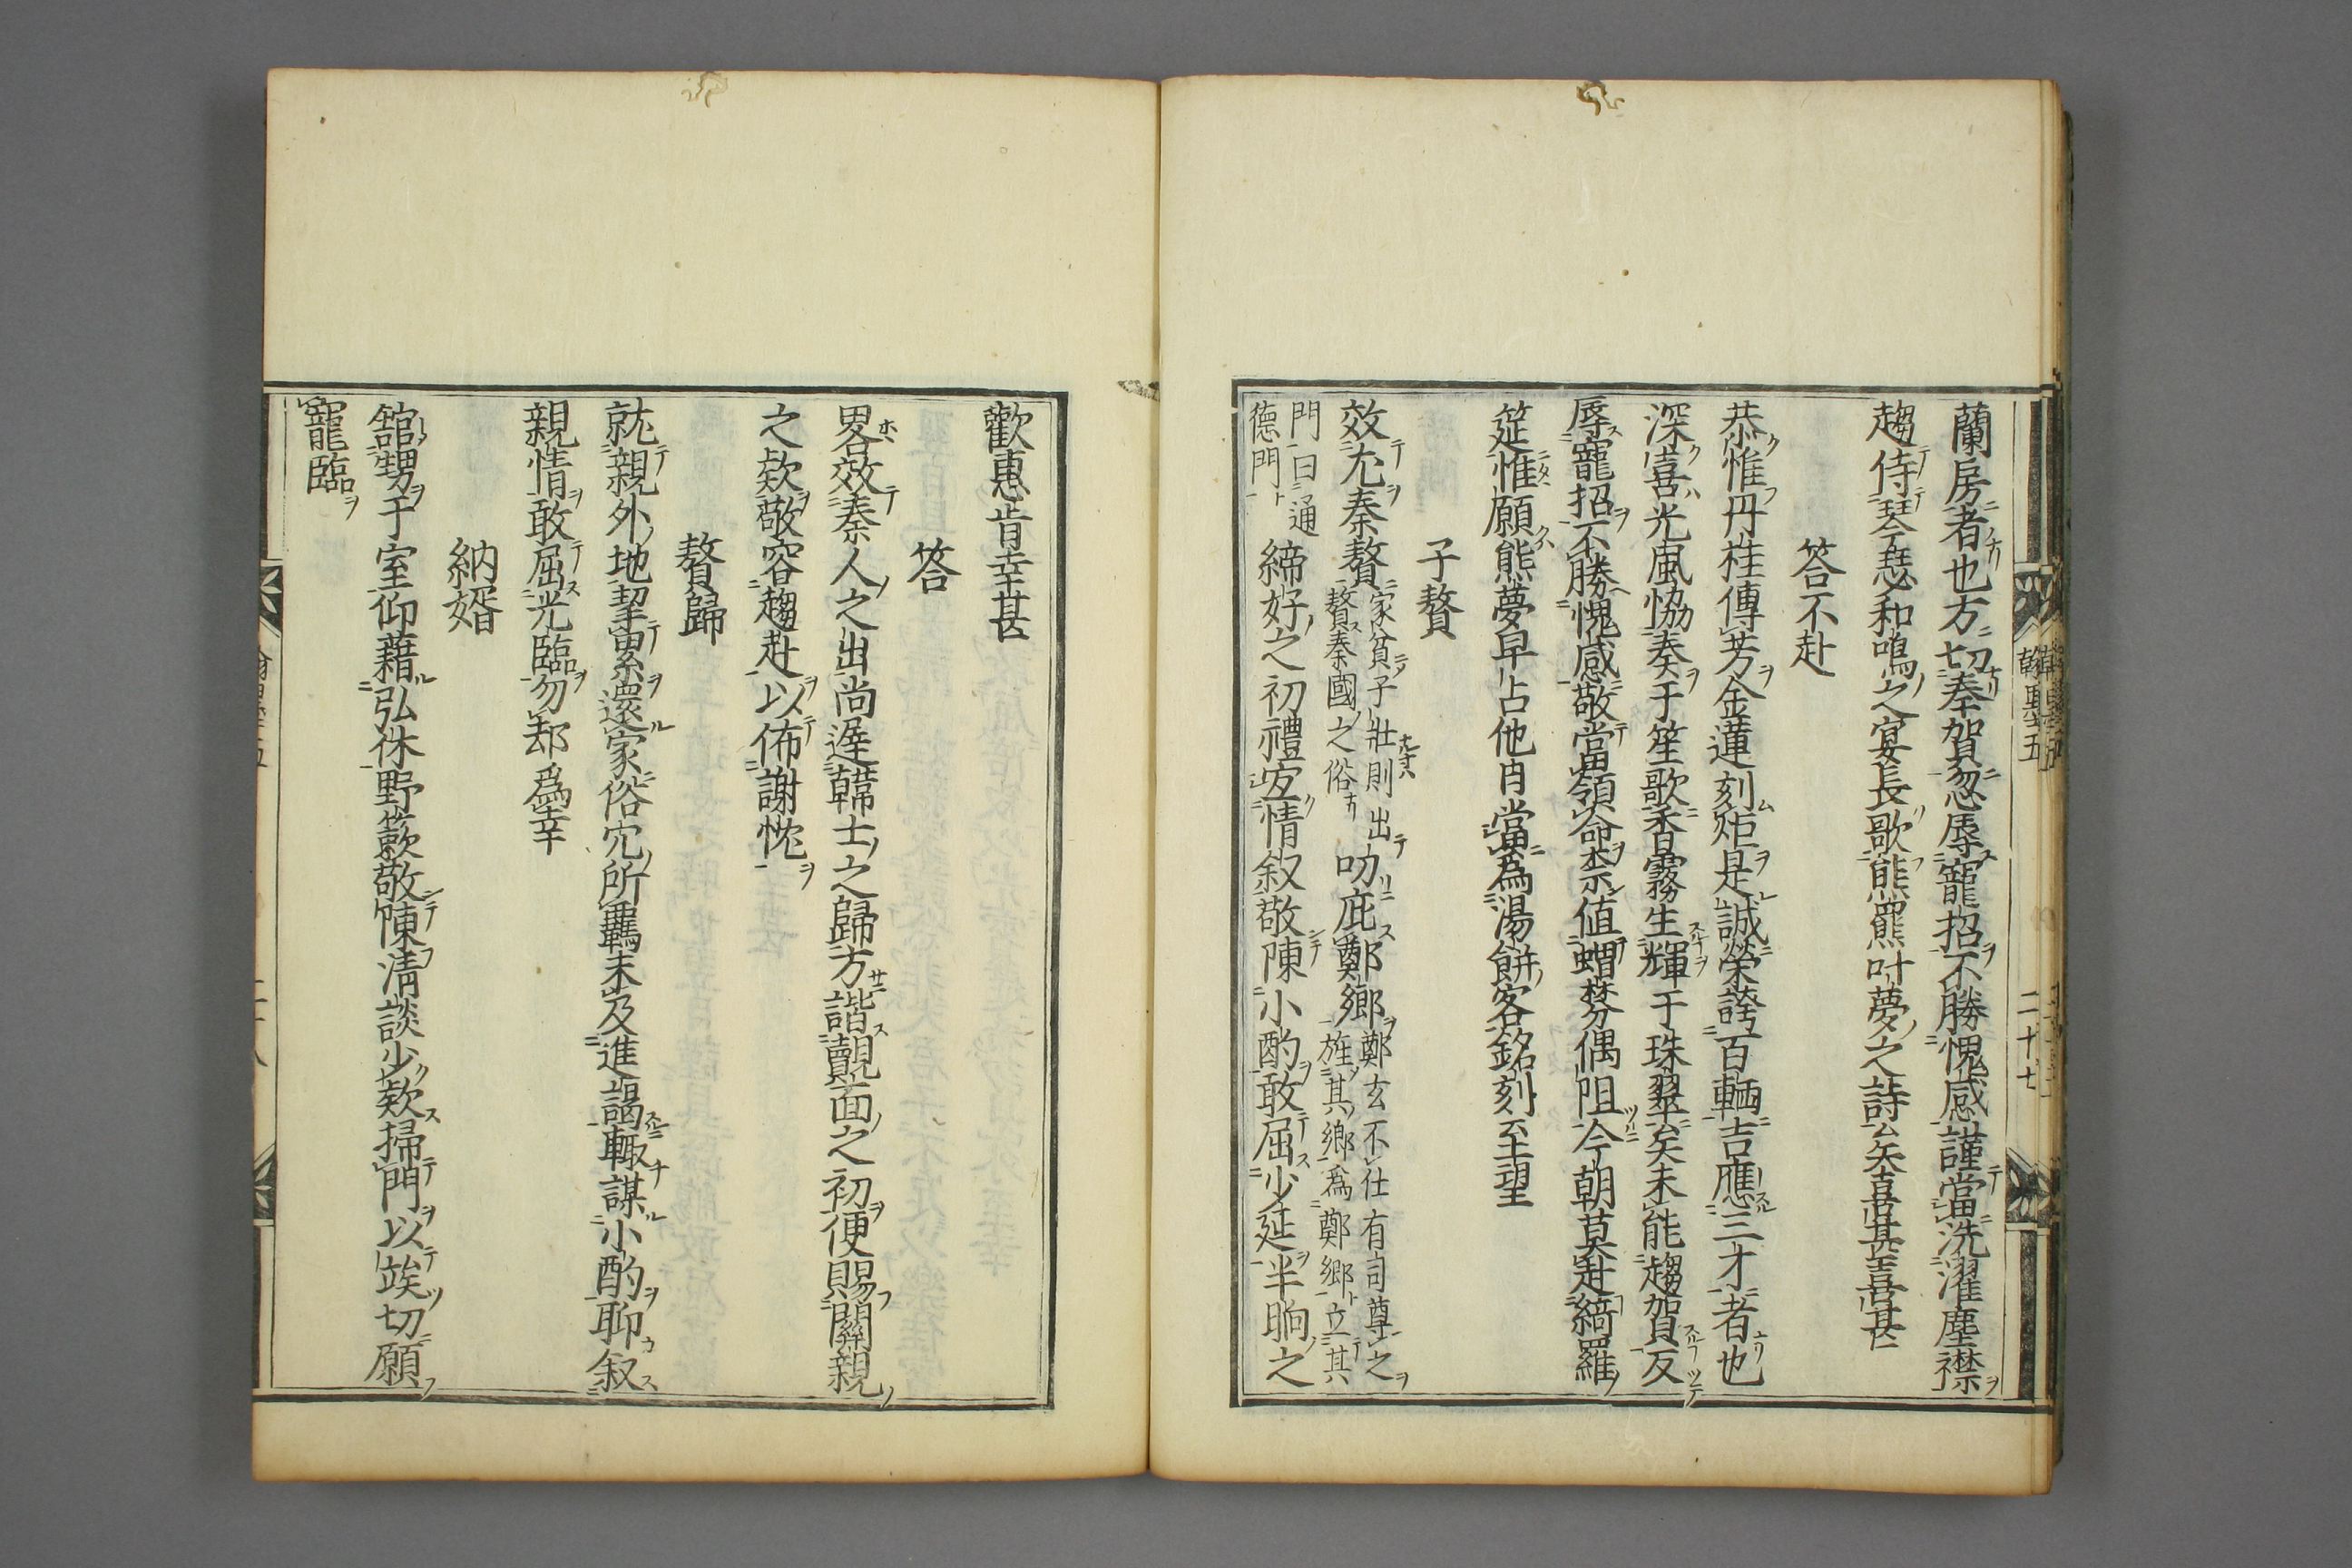 蘭房者也方切奉賀忽辱寵招不勝愧感謹當洗濯塵襟
趨侍琴瑟和鳴之宴長歌熊羆叶夢之詩矣喜甚喜甚
答不赴
恭惟丹桂傳芳金蓮刻炬是誠榮誇百輛吉應三才者也
深喜光風恊奏于笙歌香霧生輝于珠翠矣未能趨賀反
辱寵招不勝愧感敬當領命柰值蝟棼偶阻今朝莫赴綺羅
筵惟願熊夢早占他日當為湯餅客銘刻至望
子贅
效尤秦贅家貧子壯則出贅秦國之俗叨庇鄭鄉鄭玄不仕有司尊之旌其鄉為鄭鄉立其
門曰通德門締好之初禮宜情叙敬陳小酌敢屈少延半晌之
歡惠肯幸甚
答
畧效秦人之出尚遲韓士之歸方諧覿面之初便賜關親
之欵敬容趨赴以佈謝忱
贅歸
就親外地挈累還家俗宂所覊未及進謁輙謀小酌聊叙
親情敢屈光臨勿却爲幸
納婿
舘甥于室仰藉弘休野蔌敬陳清談少欵掃門以竢切願
寵臨
翰墨五
二十七